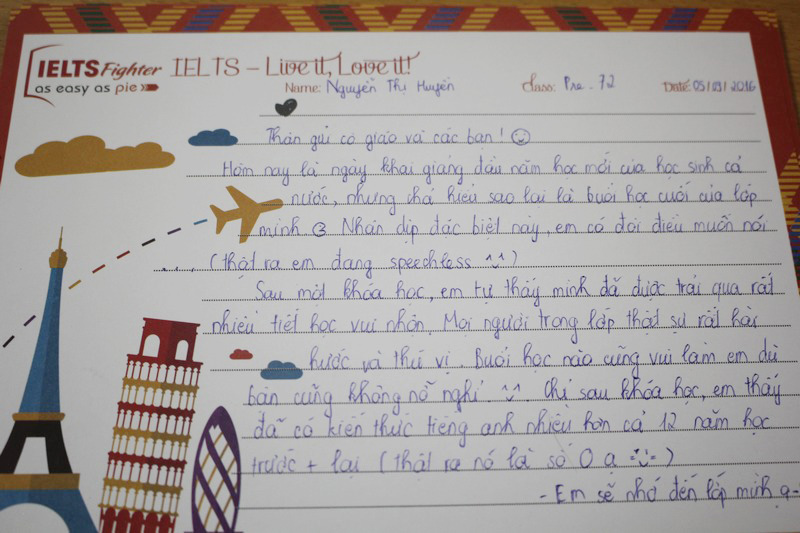 IELTS Fighter IELTS – Live it, Love it!
as easy as pie
Name: Nguyễn Thị Huyền Class: Pre - 72 Date: 05/09/2016
Thân gửi cô giáo và các bạn!
Hôm nay là ngày khai giảng đầu năm học mới của học sinh cả
nước, nhưng chả hiểu sao lại là buổi học cuối của lớp
mình Nhân dịp đặc biệt này, em có đôi điều muốn nói
.... (thật ra em đang speechless ^^)
Sau một khóa học, em tự thấy mình đã được trải qua rất
nhiều tiết học vui nhộn. Mọi người trong lớp thật sự rất hài
hước và thú vị. Buổi học nào cũng vui làm em dù
bận cũng không nỡ nghỉ ^^. Chỉ sau khóa học, em thấy
đã có kiến thức tiếng anh nhiều hơn cả 12 năm học
trước + lại (thật ra nó là số 0 ạ)
- Em sẽ nhớ đến lớp mình ạ -